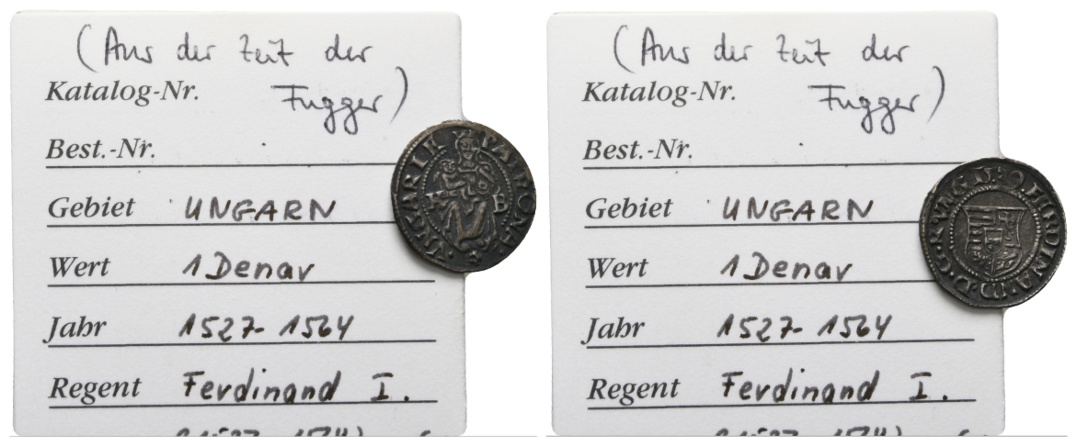 (Aus der Zeit der
Katalog-Nr. Fugger)
Best.-Nr.
Gebiet UNGARN
Wert 1 Denar
Jahr 1527-1564
Regent Ferdinand I.
PATRONA
K B
(Aus der Zeit der
Katalog-Nr. Fugger)
Best.-Nr.
Gebiet UNGARN
Wert 1 Denar
Jahr 1527-1564
Regent Ferdinand I.
FERDINA